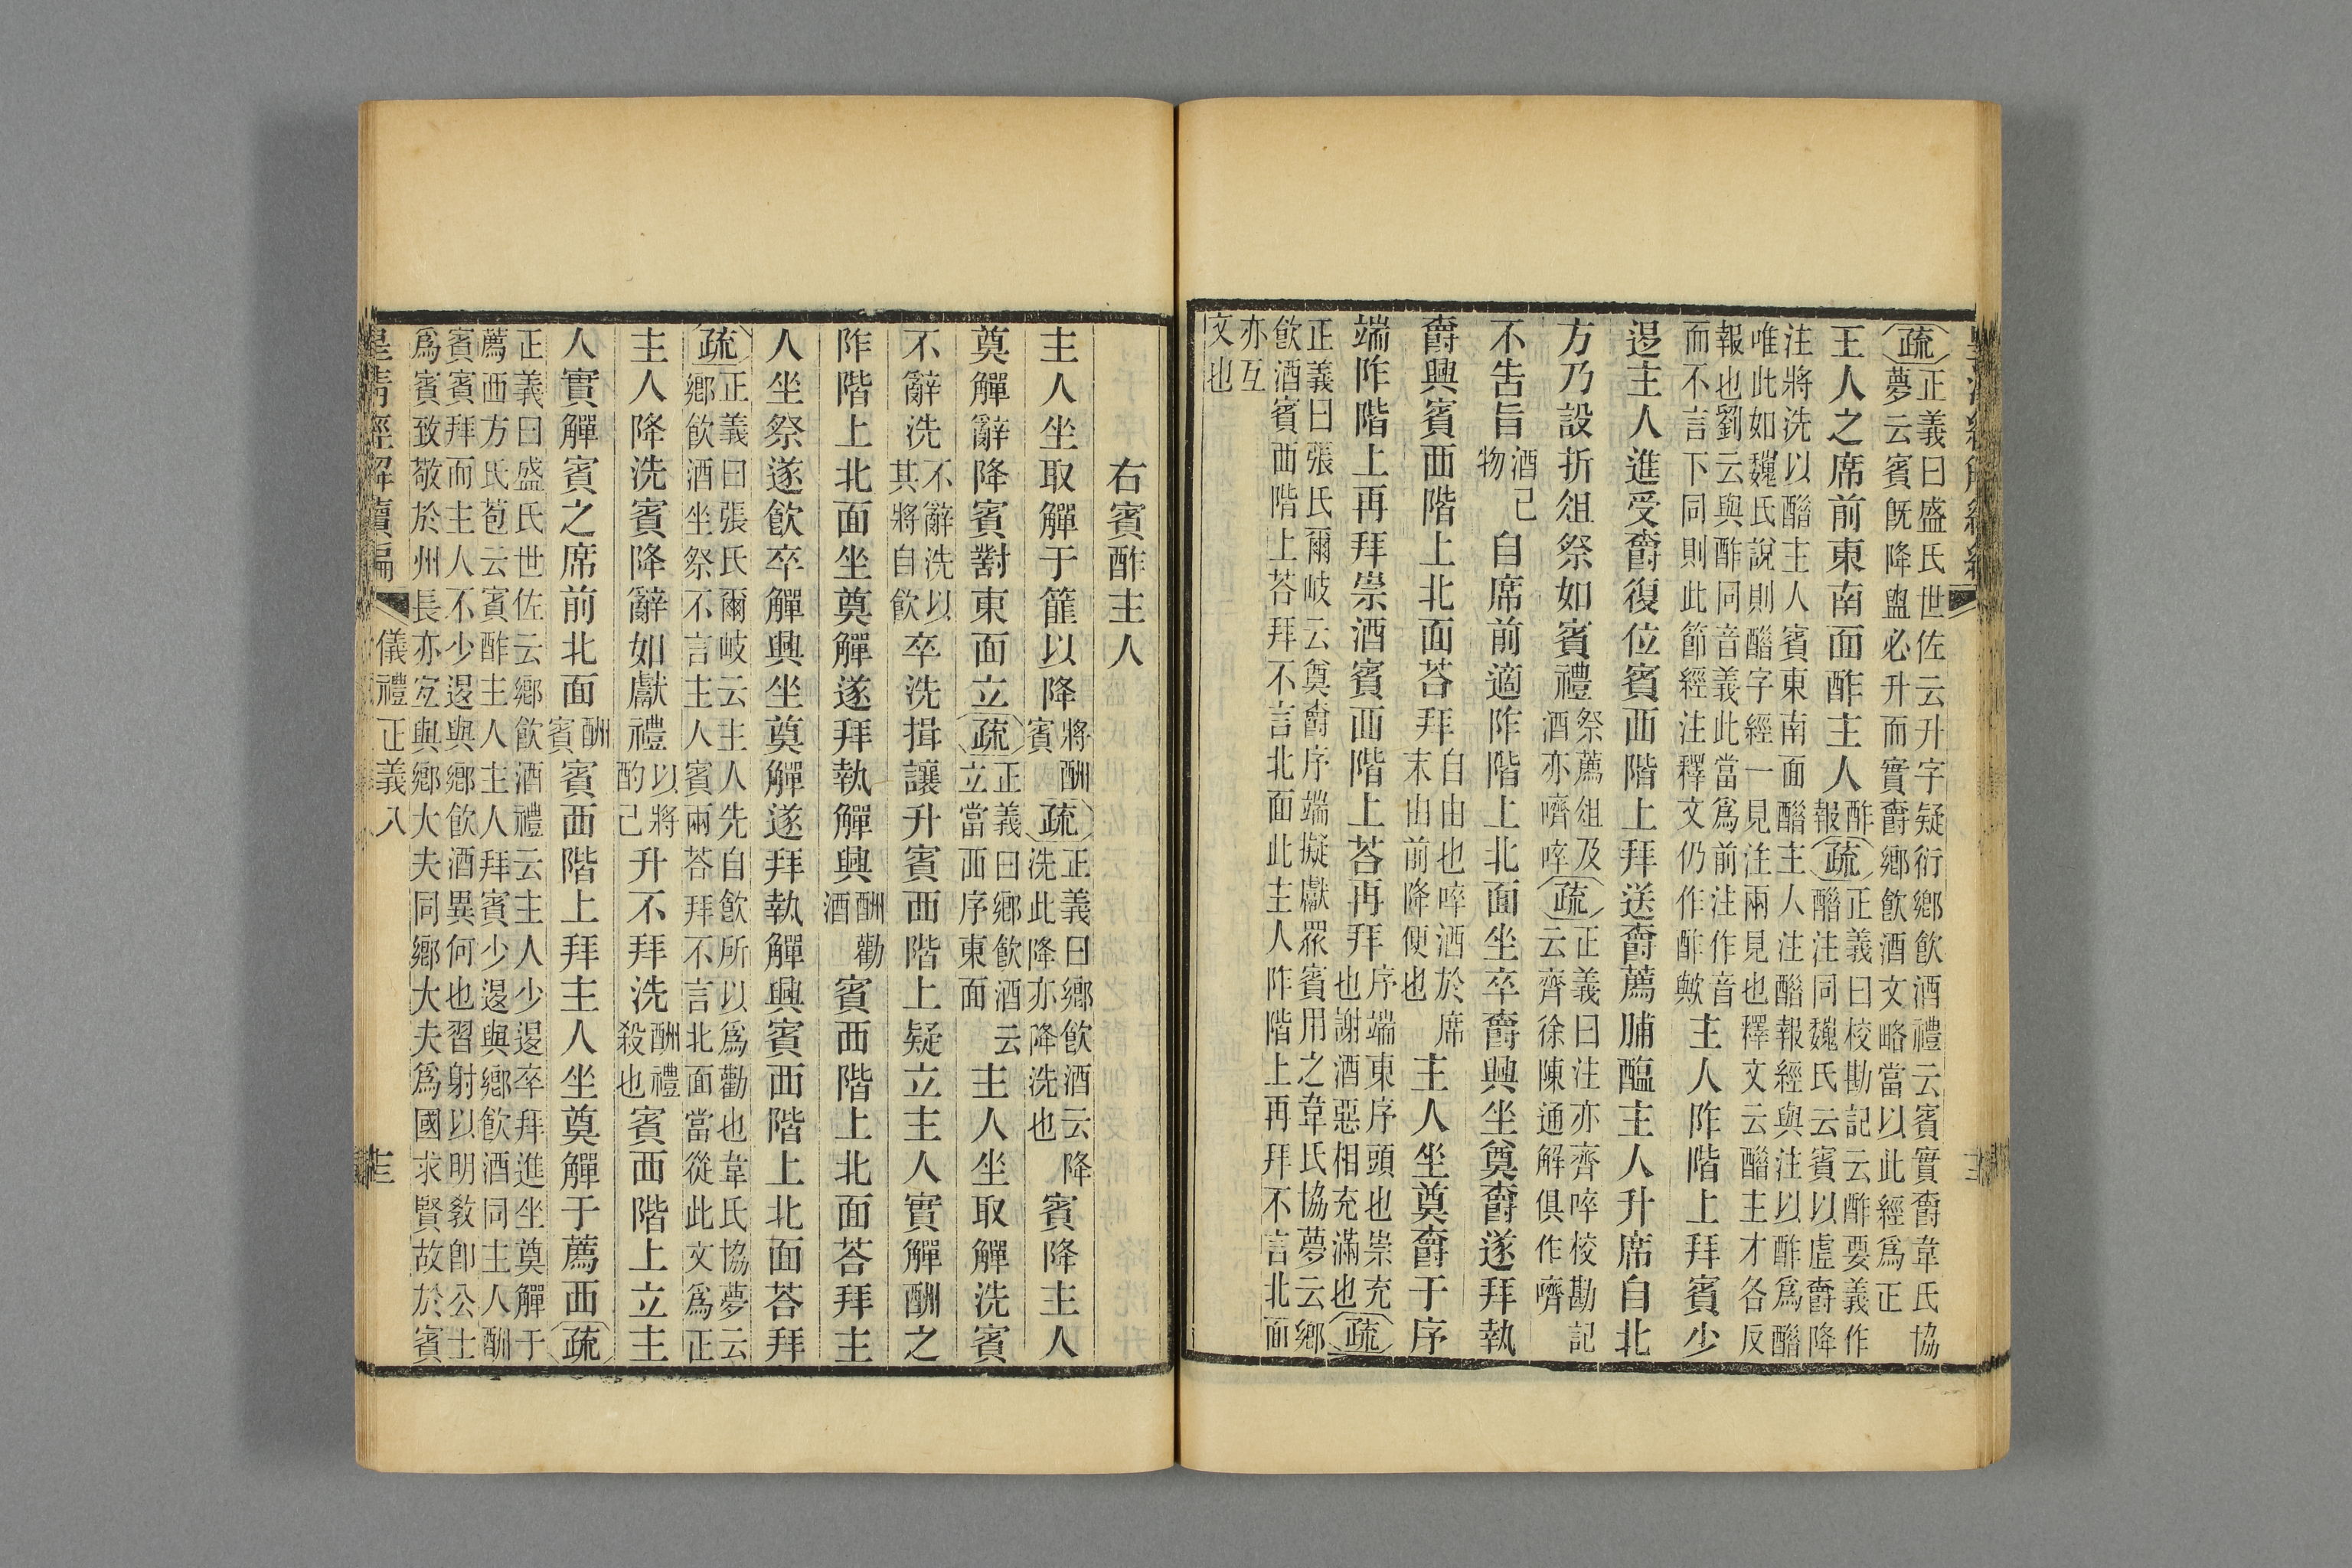 疏正義曰盛氏世佐云升字疑衍鄉飲酒禮云賓實爵韋氏協
夢云賓旣降盥必升而實爵鄉飲酒文略當以此經爲正
主人之席前東南面酢主人酢報疏正義曰校勘記云酢要義作
醋注同魏氏云賓以虛爵降
注將洗以醋主人賓東南面醋主人注醋報經與注以酢爲醋
唯此如魏氏說則醋字經一見注兩見也釋文云醋主才各反
報也劉云與酢同音義此當爲前注作音
而不言下同則此節經注釋文仍作酢歟主人阼階上拜賓少
退主人進受爵復位賓西階上拜送爵薦脯醢主人升席自北
方乃設折俎祭如賓禮祭薦俎及酒亦嚌啐疏正義曰注亦齊啐校勘記
云齊徐陳通解俱作嚌
不告旨酒己物自席前適阼階上北面坐卒爵興坐奠爵遂拜執
爵興賓西階上北面荅拜自由也啐酒於席末由前降便也主人坐奠爵于序
端阼階上再拜崇酒賓西階上荅再拜序端東序頭也崇充也謝酒惡相充滿也疏
正義曰張氏爾岐云奠爵序端擬獻眾賓用之韋氏協夢云鄉
飲酒賓西階上荅拜不言北面此主人阼階上再拜不言北面
亦互
文也
右賓酢主人
主人坐取觶于篚以降將酬賓疏正義曰鄉飲酒云降
洗此降亦降洗也賓降主人
奠觶辭降賓對東面立疏正義曰鄉飲酒云
立當西序東面主人坐取觶洗賓
不辭洗不辭洗以其將自飲卒洗揖讓升賓西階上疑立主人實觶酬之
阼階上北面坐奠觶遂拜執觶興酬勸酒賓西階上北面荅拜主
人坐祭遂飲卒觶興坐奠觶遂拜執觶興賓西階上北面荅拜
疏正義曰張氏爾岐云主人先自飲所以爲勸也韋氏協夢云
鄉飲酒坐祭不言主人賓兩荅拜不言北面當從此文爲正
主人降洗賓降辭如獻禮以將酌己升不拜洗酬禮殺也賓西階上立主
人實觶賓之席前北面酬賓賓西階上拜主人坐奠觶于薦西疏
正義曰盛氏世佐云鄉飲酒禮云主人少退卒拜進坐奠觶于
薦西方氏苞云賓酢主人主人拜賓少退與鄉飲酒同主人酬
賓賓拜而主人不少退與鄉飲酒異何也習射以明敎卽公士
爲賓致敬於州長亦宐與鄉大夫同鄉大夫爲國求賢故於賓
皇清經解續編 儀禮正義八 十三